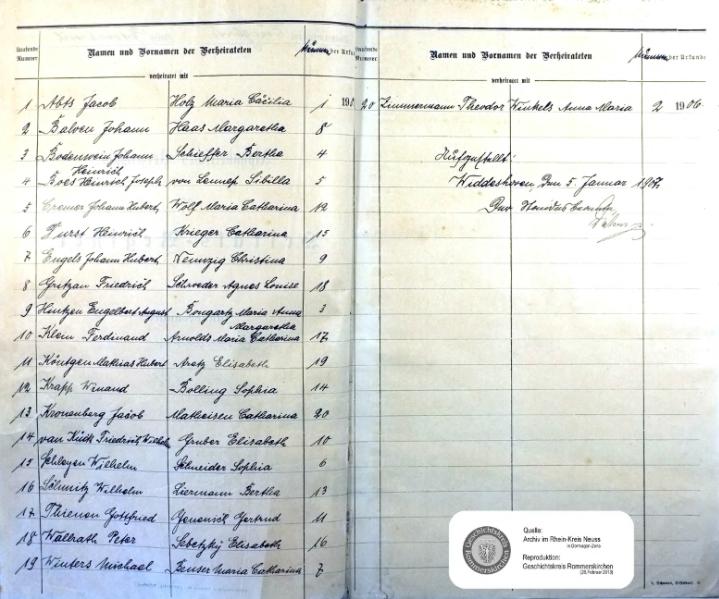 Laufende Nummer Namen und Vornamen der Verheirateten Nummer der Urkunde
verheiratet mit
1 Abts Jacob Holz Maria Cäcilia 1 190
2 Balven Johann Haas Margaretha 8
3 Bodenwein Johann Heinrich Schieffer Bertha 4
4 Boes Heinrich Joseph von Lennep Sibilla 5
5 Cremer Johann Hubert Wolf Maria Catharina 12
6 Durst Heinrich Krieger Catharina 15
7 Engels Johann Hubert Nemzig Christina 9
8 Gritzan Friedrich Schroeder Agnes Louise 18
9 Hintzen Engelbert August Bongartz Maria Anna Margaretha 3
10 Klein Ferdinand Arnolds Maria Catharina 17
11 Köntgen Mathias Hubert Aretz Elisabeth 19
12 Krapp Winand Bolling Sophia 14
13 Kronenberg Jacob Matheisen Catharina 20
14 van Kück Friedrich Wilhelm Gruber Elisabeth 10
15 Schleyen Wilhelm Schneider Sophia 6
16 Schmitz Wilhelm Liermann Bertha 13
17 Thienen Gottfried Gertrud 11
18 Wallrath Peter Elisabeth 16
19 Winters Michael Maria Catharina 7
Laufende Nummer Namen und Vornamen der Verheirateten Nummer der Urkunde
verheiratet mit
20 Zimmermann Theodor Winkels Anna Maria 2 1906
Aufgestellt:
Widdeshoven, den 5. Januar 1907
Der Standesbeamte
Quelle:
Archiv im Rhein-Kreis Neuss
in Dormagen-Zons
Reproduktion:
Geschichtskreis Rommerskirchen
(28.Februar 2018)
Geschichtskreis
Rommerskirchen